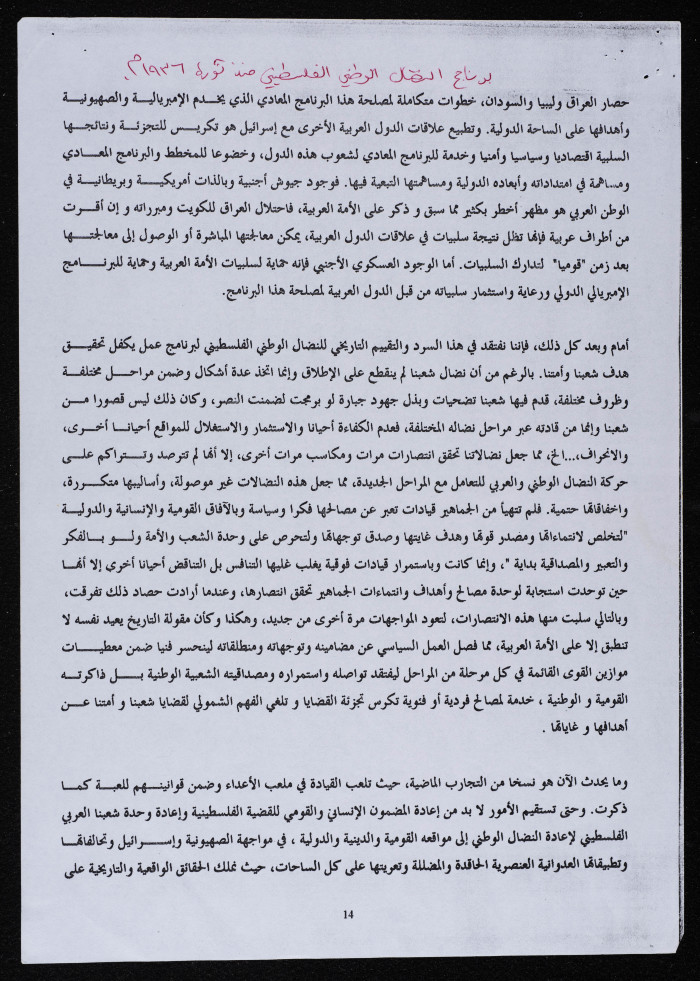 برنامج النضال الوطني الفلسطيني منذ ثورة ١٩٣٦م
حصار العراق وليبيا والسودان، خطوات متكاملة لمصلحة هذا البرنامج المعادي الذي يخدم الإمبريالية والصهيونية
وأهدافها على الساحة الدولية. وتطبيع علاقات الدول العربية الأخرى مع إسرائيل هو تكريس للتجزئة ونتائجها
السلبية اقتصاديا وسياسيا وأمنيا وخدمة للبرنامج المعادي لشعوب هذه الدول، وخضوعا للمخطط والبرنامج المعادي
ومساهمة في امتداداته وأبعاده الدولية ومساهمتها التبعية فيها. فوجود جيوش أجنبية وبالذات أمريكية وبريطانية في
الوطن العربي هو مظهر أخطر بكثير مما سبق و ذكر على الأمة العربية، فاحتلال العراق للكويت ومبرراته و إن أقرت
من أطراف عربية فإنها تظل نتيجة سلبيات في علاقات الدول العربية، يمكن معالجتها المباشرة أو الوصول إلى معالجتها
بعد زمن "قوميا" لتدارك السلبيات. أما الوجود العسكري الأجنبي فإنه حماية لسلبيات الأمة العربية وحماية للبرنامج
الإمبريالي الدولي ورعاية واستثمار سلبياته من قبل الدول العربية لمصلحة هذا البرنامج.
أمام وبعد كل ذلك، فإننا نفتقد في هذا السرد والتقييم التاريخي للنضال الوطني الفلسطيني لبرنامج عمل يكفل تحقيق
هدف شعبنا وأمتنا. بالرغم من أن نضال شعبنا لم ينقطع على الإطلاق وإنما اتخذ عدة أشكال وضمن مراحل مختلفة
وظروف مختلفة، قدم فيها شعبنا تضحيات وبذل جهود جبارة لو برمجت لضمنت النصر، وكان ذلك ليس قصورا من
شعبنا وإنما من قادته عبر مراحل نضاله المختلفة، فعدم الكفاءة أحيانا والاستثمار والاستغلال للمواقع أحيانا أخرى،
والانحراف،...الخ، مما جعل نضالاتنا تحقق انتصارات مرات ومكاسب مرات أخرى، إلا أنها لم تترصد وتتراكم على
حركة النضال الوطني والعربي للتعامل مع المراحل الجديدة، مما جعل هذه النضالات غير موصولة، وأساليبها متكررة،
واخفاقاتها حتمية. فلم تتهيأ من الجماهير قيادات تعبر عن مصالحها فكرا وسياسة وبالآفاق القومية والإنسانية والدولية
"لتخلص لانتماءاتها ومصدر قوتها وهدف غايتها وصدق توجهاتها ولتحرص على وحدة الشعب والأمة ولو بالفكر
والتعبير والمصداقية بداية "، وإنما كانت وباستمرار قيادات فوقية يغلب غليها التنافس بل التناقض أحيانا أخرى إلا أنها
حين توحدت استجابة لوحدة مصالح وأهداف وانتماءات الجماهير تحقق انتصارها، وعندما أرادت حصاد ذلك تفرقت،
وبالتالي سلبت منها هذه الانتصارات، لتعود المواجهات مرة أخرى من جديد، وهكذا وكأن مقولة التاريخ يعيد نفسه لا
تنطبق إلا على الأمة العربية، مما فصل العمل السياسي عن مضامينه وتوجهاته ومنطلقاته لينحسر فنيا ضمن معطيات
موازين القوى القائمة في كل مرحلة من المراحل ليفتقد تواصله واستمراره ومصداقيته الشعبية الوطنية بل ذاكرته
القومية و الوطنية ، خدمة لمصالح فردية أو فئوية تكرس تجزئة القضايا و تلغي الفهم الشمولي لقضايا شعبنا و أمتنا عن
أهدافها و غاياتها .
وما يحدث الآن هو نسخا من التجارب الماضية، حيث تلعب القيادة في ملعب الأعداء وضمن قوانينهم للعبة كما
ذكرت. وحتى تستقيم الأمور لا بد من إعادة المضمون الإنساني والقومي للقضية الفلسطينية وإعادة وحدة شعبنا العربي
الفلسطيني لإعادة النضال الوطني إلى مواقعه القومية والدينية والدولية ، في مواجهة الصهيونية وإسرائيل وتحالفاتها
وتطبيقاتها العدوانية العنصرية الحاقدة والمضللة وتعريتها على كل الساحات، حيث نملك الحقائق الواقعية والتاريخية على
14